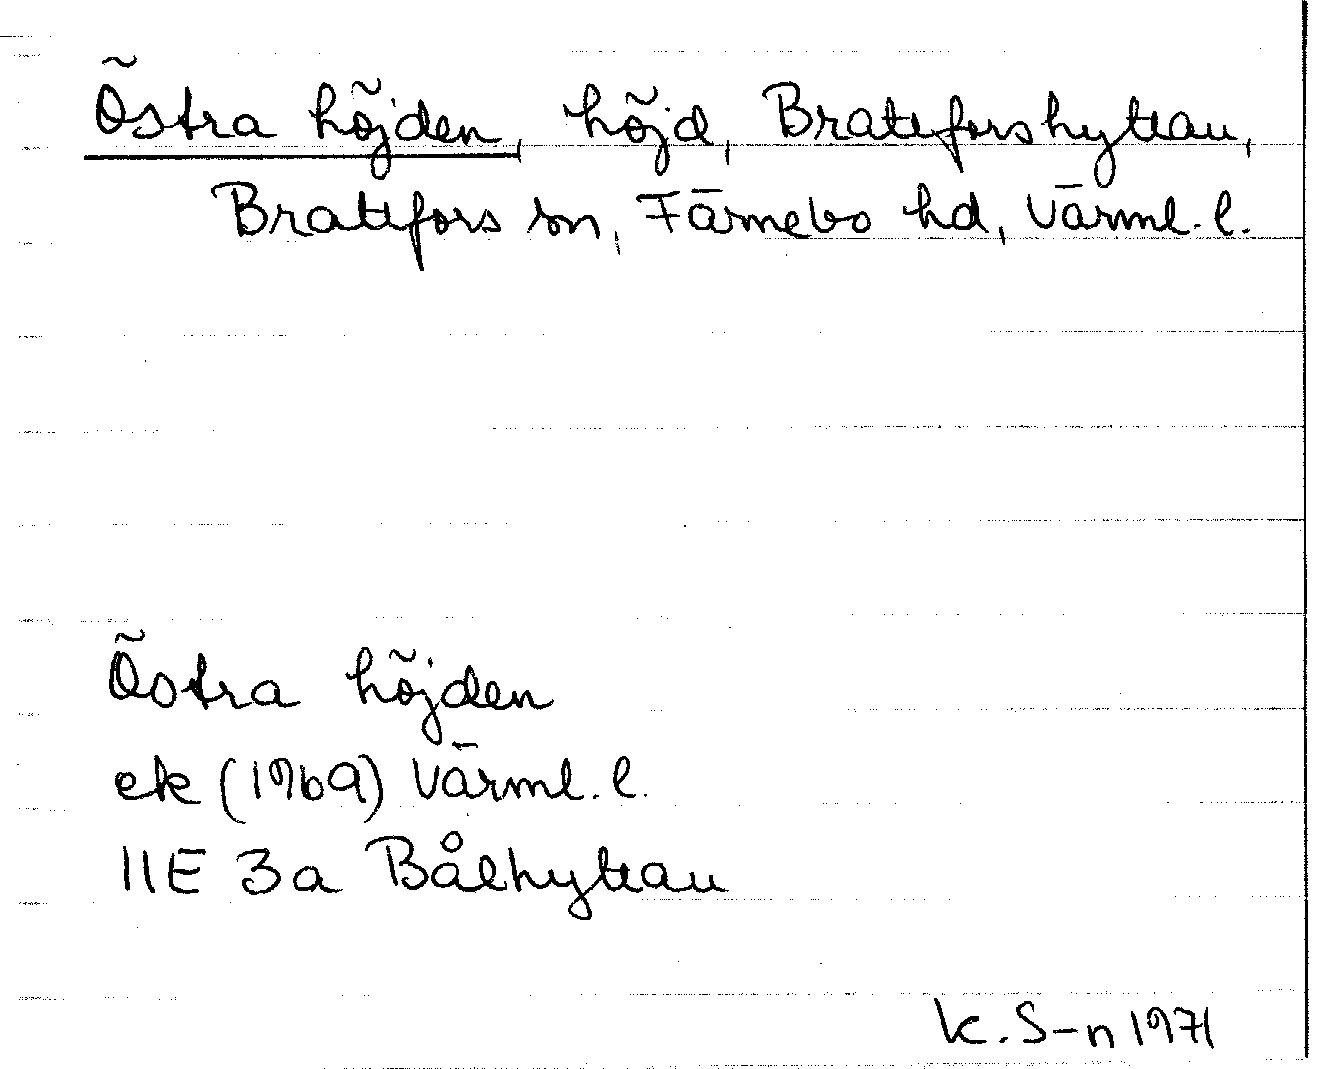 Östra höjden, höjd, Brattforshyttan,
Brattfors sn, Färnebo hd, Värml. l.
Östra höjden
ek (1969) Värml. l.
11E 3a Bålhyttan
K. S-n 1971